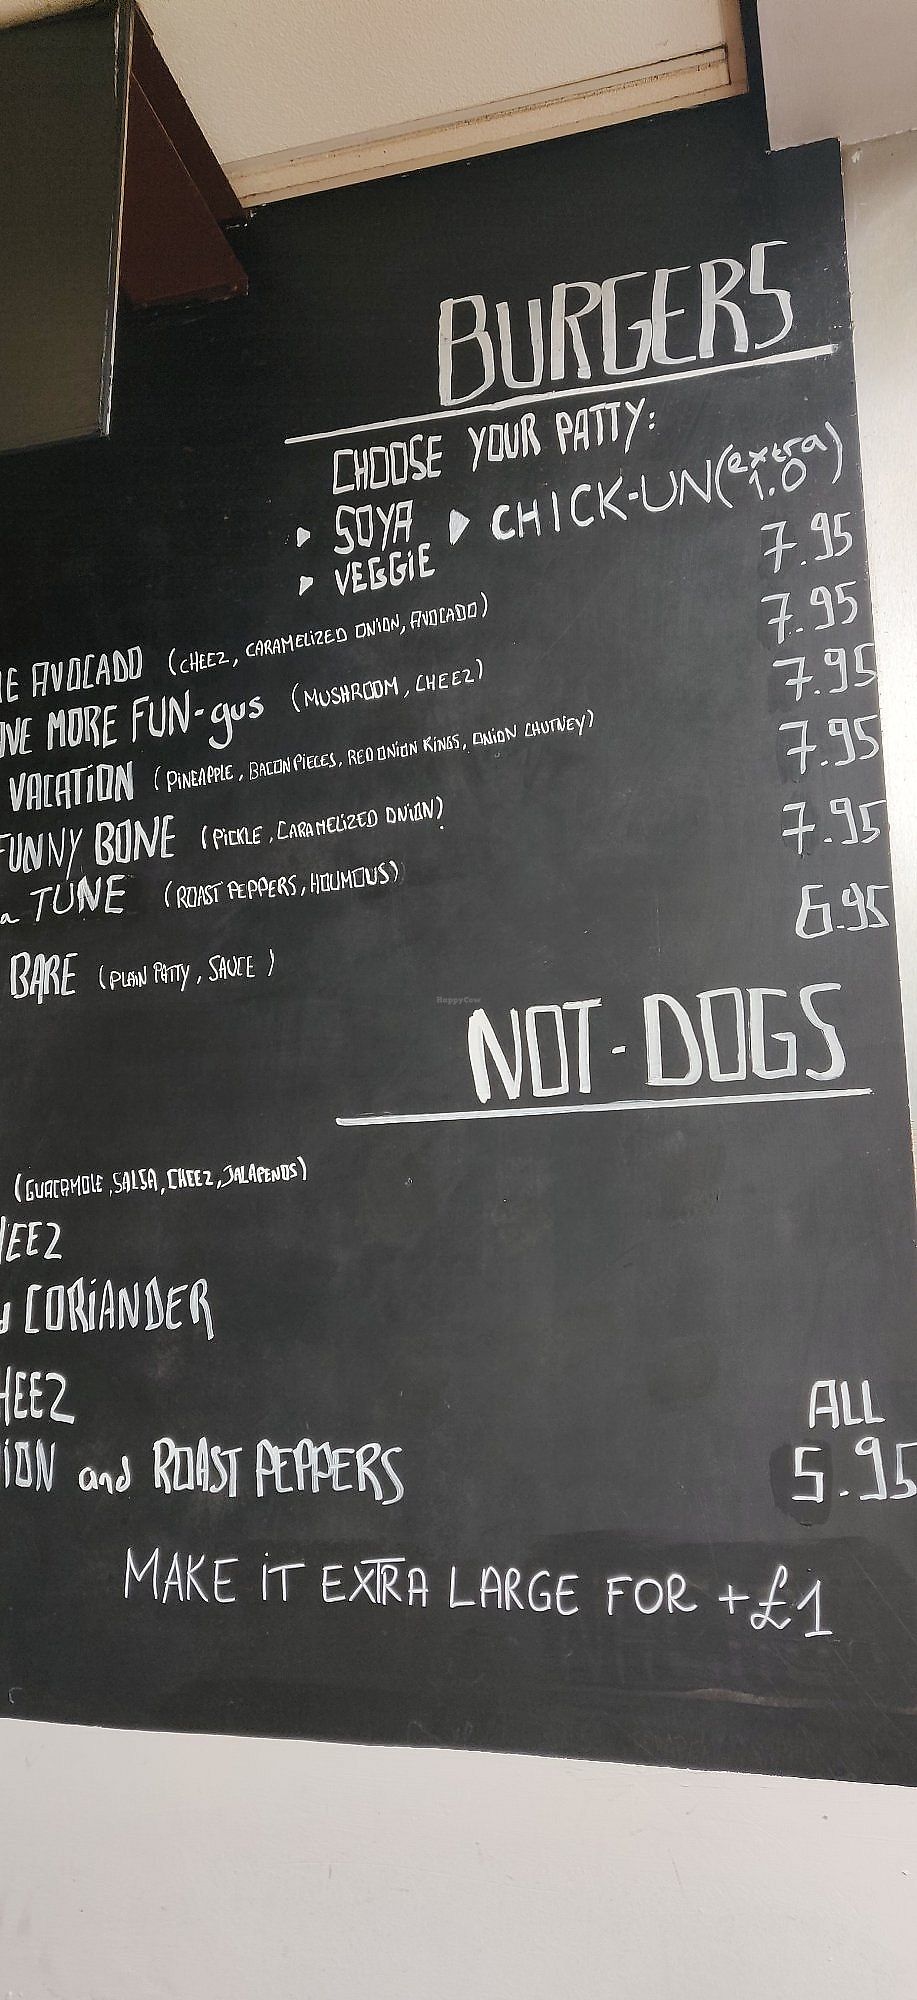 BURGERS
CHOOSE YOUR PATTY:
▸ SOYA ▸ CHICK-UN (extra 1.0)
▸ VEGGIE
AVOCADO (CHEEZ, CARAMELIZED ONION, AVOCADO) 7.95
MORE FUN-gus (MUSHROOM, CHEEZ) 7.95
VACATION (PINEAPPLE, BACON PIECES, RED ONION RINGS, ONION CHUTNEY) 7.95
FUNNY BONE (PICKLE, CARAMELIZED ONION) 7.95
a TUNE (ROAST PEPPERS, HOUMOUS) 7.95
BARE (PLAIN PATTY, SAUCE) 6.95
HappyCow
NOT-DOGS
(GUACAMOLE, SALSA, CHEEZ, JALAPENOS)
HEEZ
CORIANDER
HEEZ
ION and ROAST PEPPERS
ALL
5.95
MAKE IT EXTRA LARGE FOR +£1